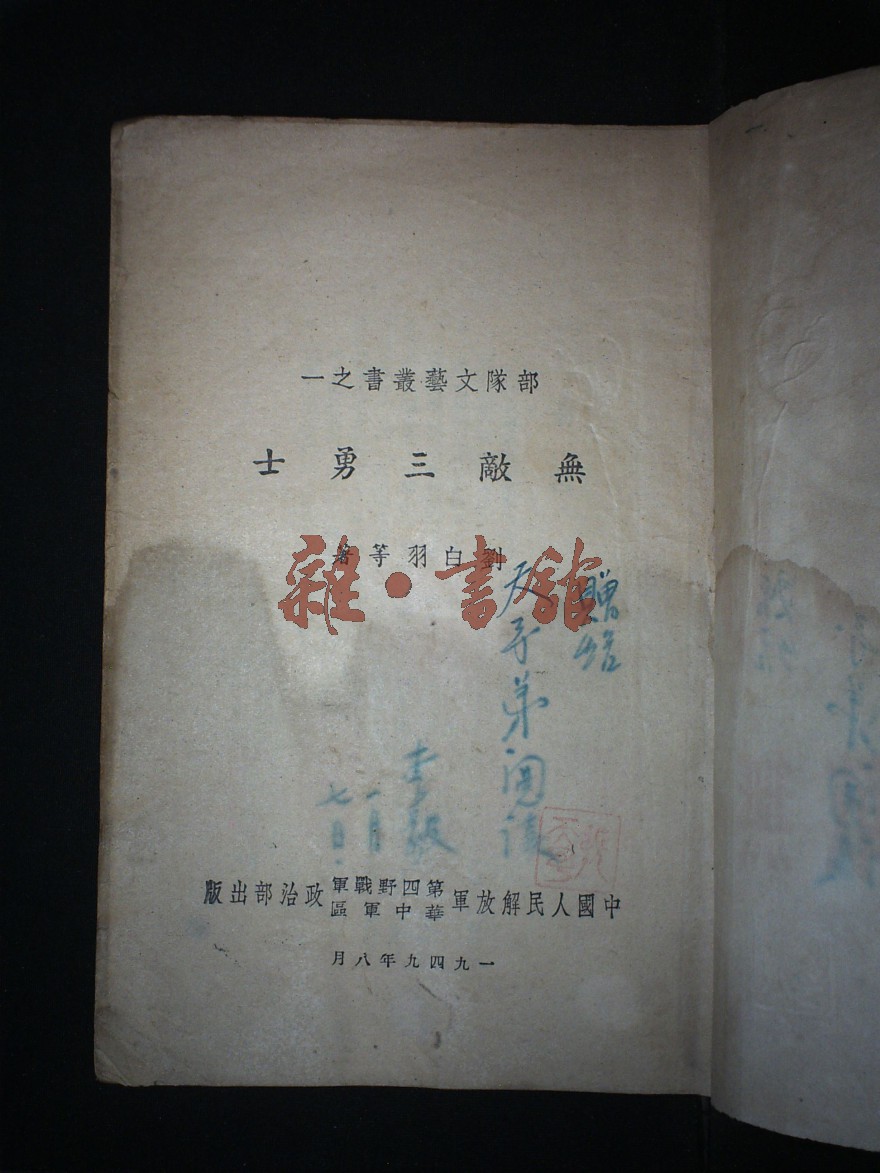 部隊文藝叢書之一
無敵三勇士
劉白羽等著
雜·書館
贈給
子弟閱讀
一月
七日
中國人民解放軍第四野戰軍華中軍區政治部出版
一九四九年八月